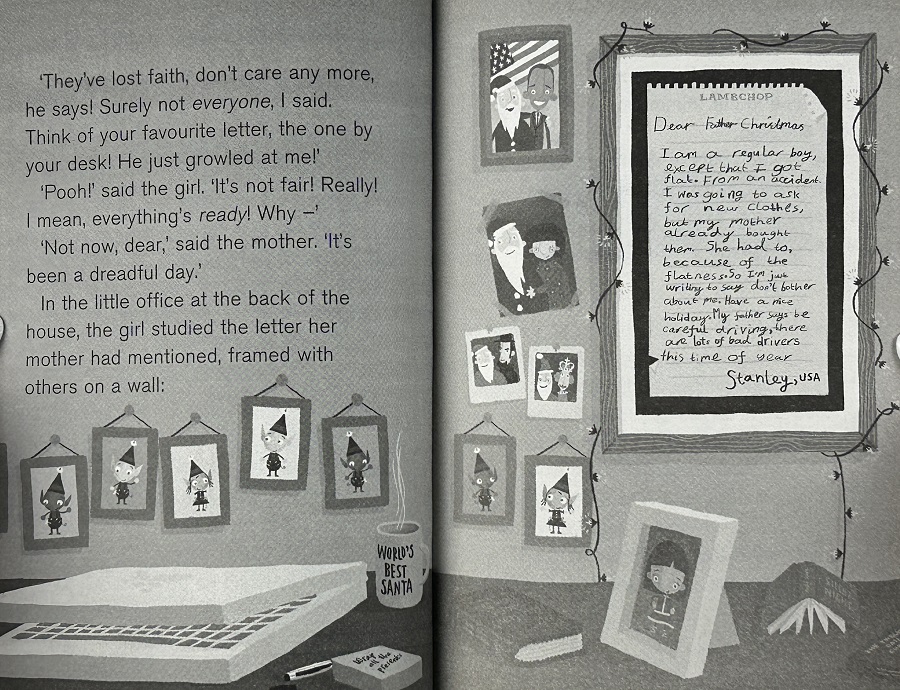 ‘They’ve lost faith, don’t care any more,
he says! Surely not everyone, I said.
Think of your favourite letter, the one by
your desk! He just growled at me!’
‘Pooh!’ said the girl. ‘It’s not fair! Really!
I mean, everything’s ready! Why –’
‘Not now, dear,’ said the mother. ‘It’s
been a dreadful day.’
In the little office at the back of the
house, the girl studied the letter her
mother had mentioned, framed with
others on a wall:
WORLD'S
BEST
SANTA
Wrap
all the
presents
LAMBCHOP
Dear Father Christmas
I am a regular boy,
except that I got
flat. From an accident.
I was going to ask
for new clothes,
but my mother
already bought
them. She had to,
because of the
flatness. So I'm just
writing to say don't bother
about me. Have a nice
holiday. My father says be
careful driving, there
are lots of bad drivers
this time of year
Stanley, USA